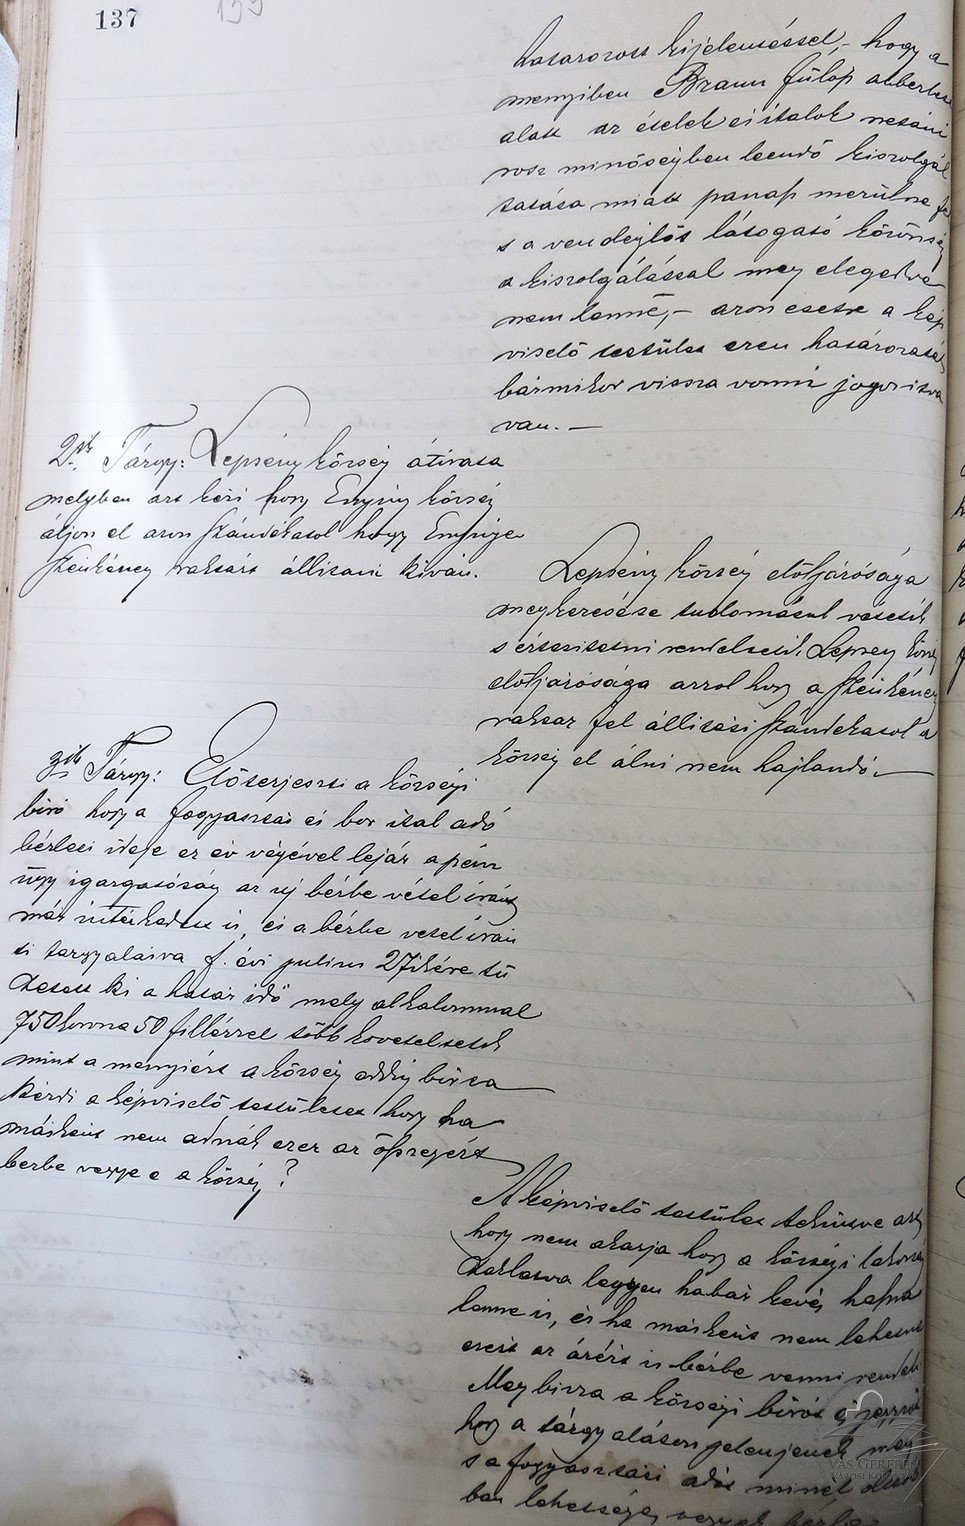 137
155
határozott kijelentéssel, – hogy a
mennyiben Braun Fülöp albérlete
alatt az ételek és italok netáni
rosz minőségben leendő kiszolgál
tatása miatt panasz merülne fel
s a vendéglőt látogató közönség
a kiszolgálással meg elégedve
nem lenne, – azon esetre a kép
viselő testület ezen határozatát
bármikor vissza vonni jogosítva
van. –
2ik Tárgy: Lepsény község átirata
melyben azt kéri hogy Enying község
áljon el azon szándékától hogy Enyingen
szeszkimérő raktárt állitani kiván.
Lepsény község elöljárósága
megkeresése tudomásul vétetik
s értesittetni rendeltetik Lepsény község
elöljárósága arról hogy a
raktár fel állitási szándékától a
község el álni nem hajlandó. –
3ik Tárgy: Előterjeszti a községi
biró hogy a fogyasztási és bor ital adó
bérleti ideje ez év végével lejár a pénz
ügy igazgatóság az új bérbe vétel iránt
már intézkedett is, és a bérbe vétel irán
ti tárgyalásra f. évi julius 27ikére tü
zetett ki a határ idő mely alkalommal
750 korona 50 fillérrel több követeltetik
mint a mennyiért a község eddig birta
Kérdi a képviselő testületet hogy ha
másként nem adnák ezer az összegért
bérbe vegye e a község?
A képviselő testület tekintve azt
hogy nem akarja hogy a községi lakosság
zaklatva legyen habár kevés haszna
lenne is, és ha másként nem lehetne
ezért az árért is bérbe venni rendeli
Meg bizza a községi birót és jegyzőt
hogy a tárgyaláson jelenjenek meg
s a fogyasztási adót minél olcsób
ban lehetséges vegyék bérbe.
VAS GEREBEN